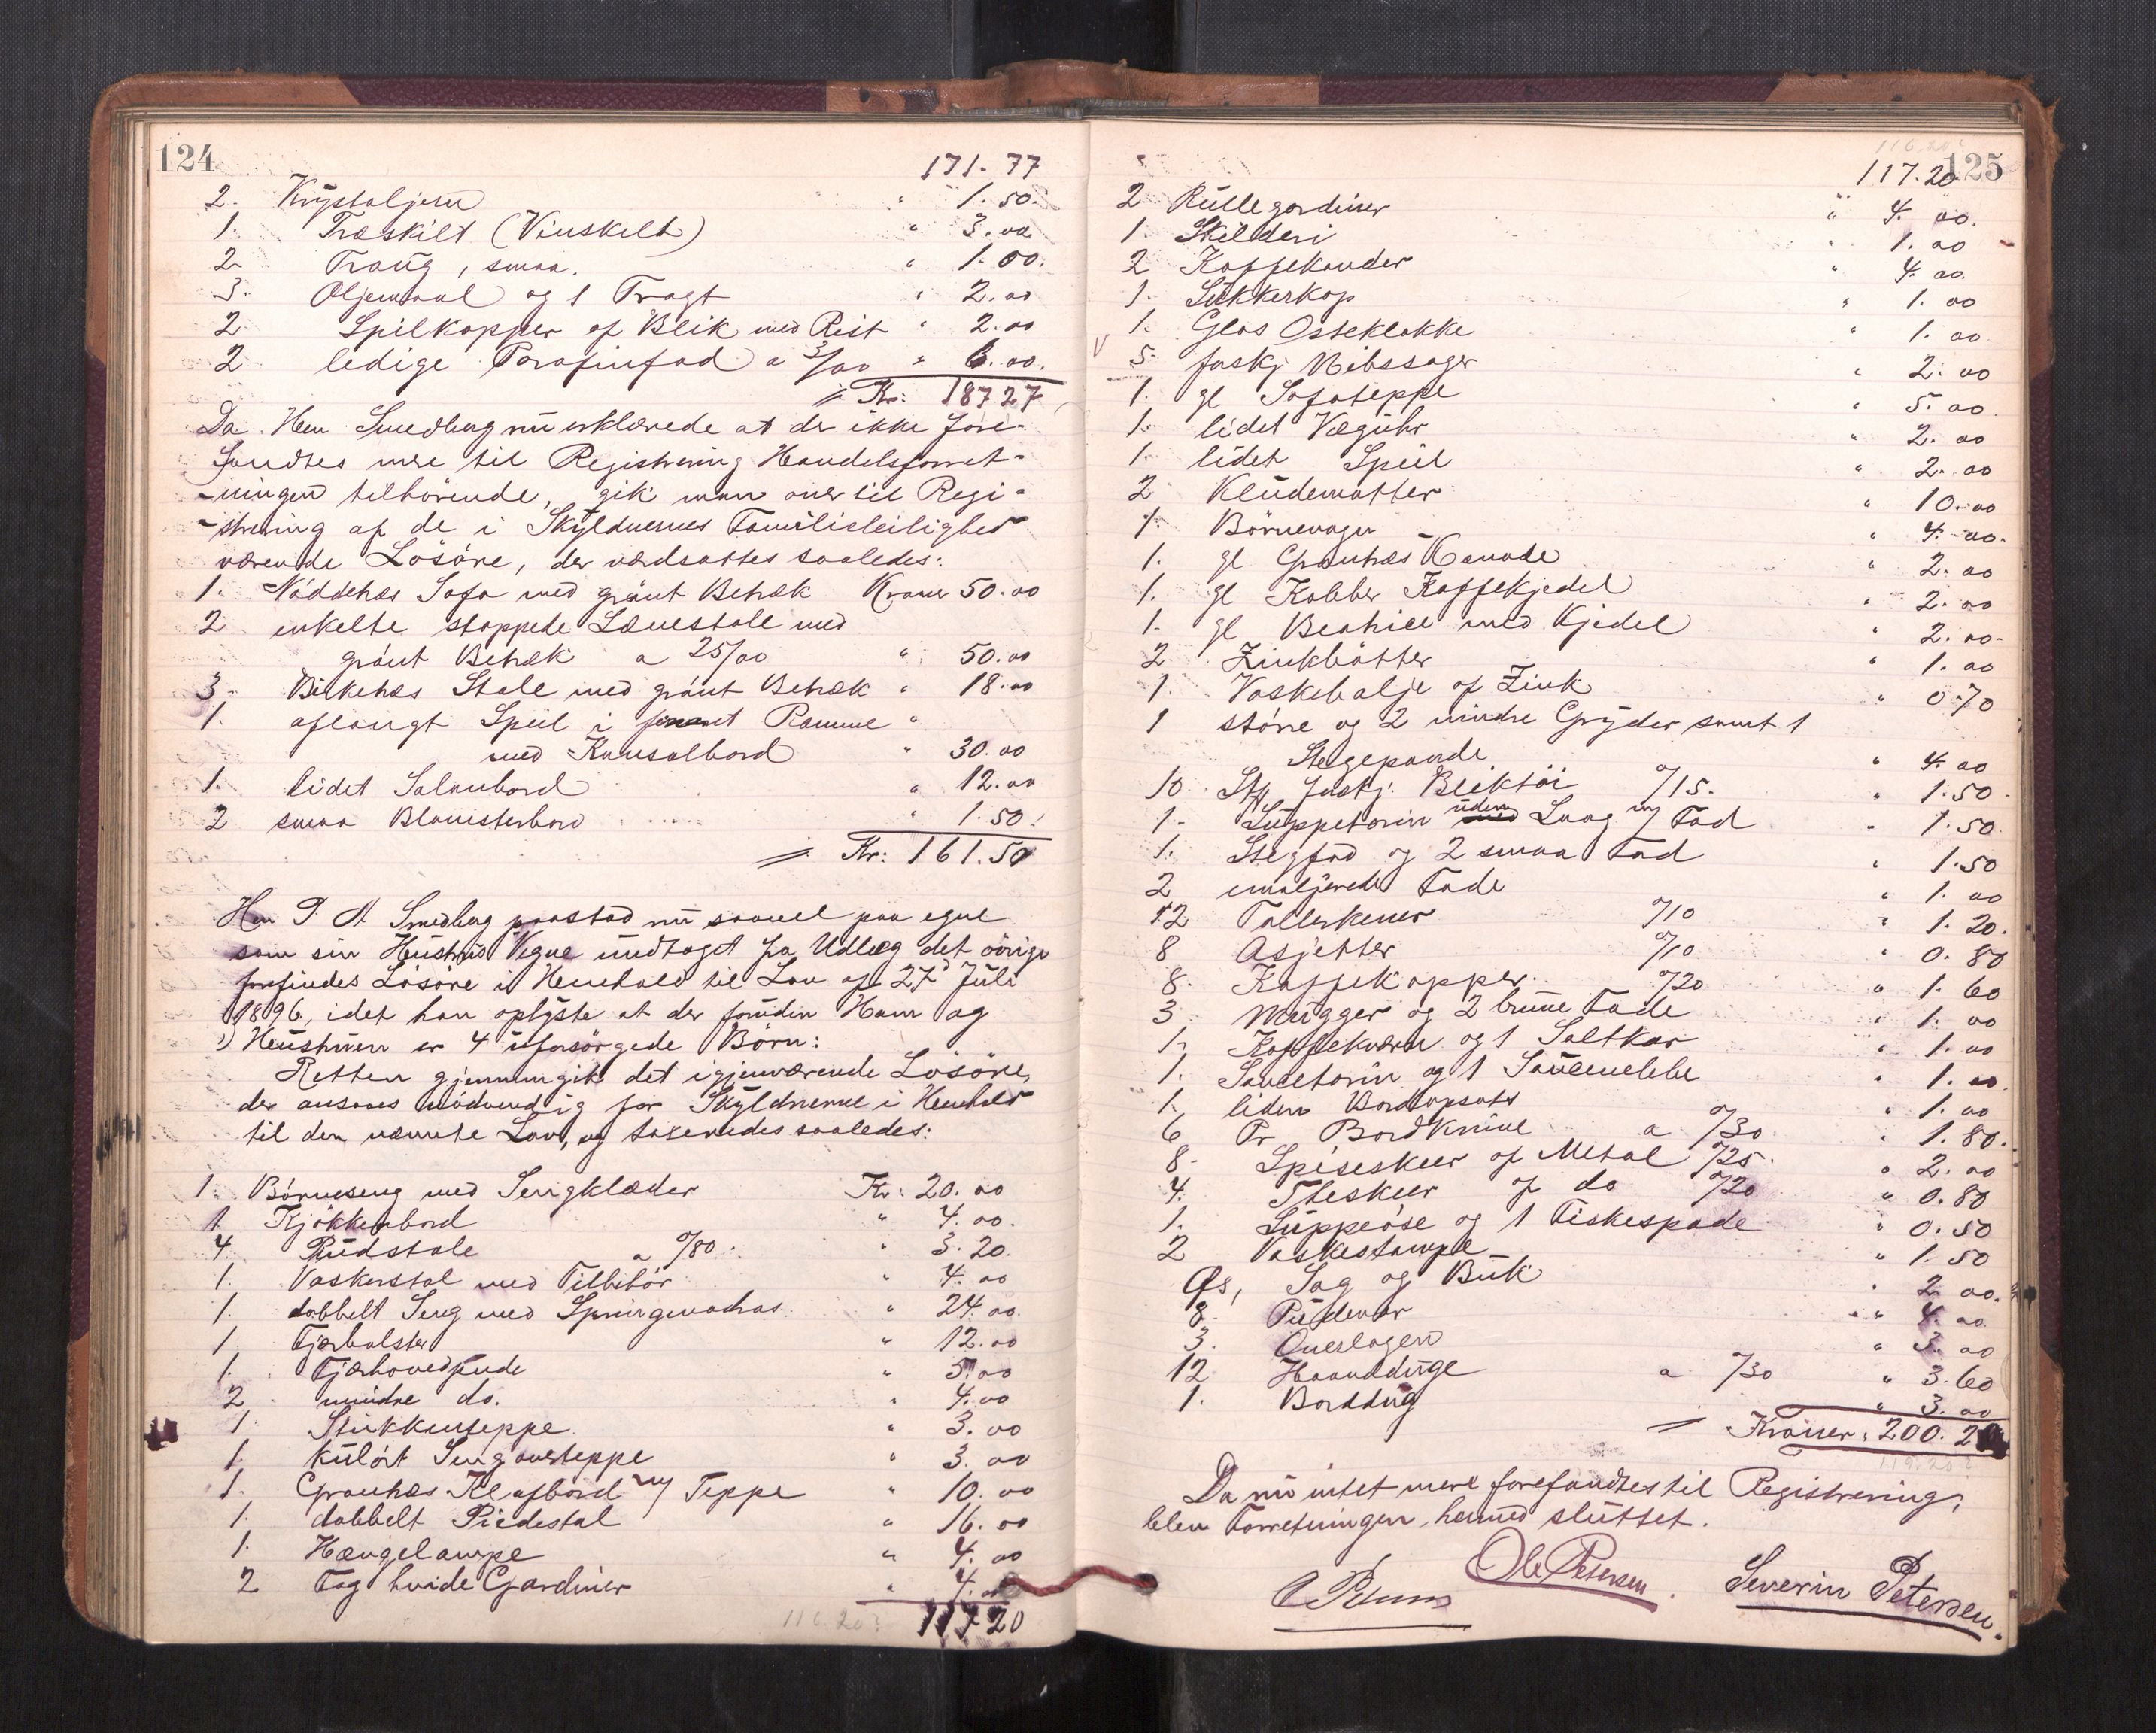 124
171.77
2. Krystaljern " 1.50.
1. Træskilt (Vinskilt) " 3.00
2 Traug, smaa. " 1.00.
3. Oljemaal og 1 Tragt " 2.00
2 Spilkopper af Blik med Rist " 2.00
2 ledige Parafinfad a 3/00 " 6.00.
Kr: 187 27
Da Herr Smedberg nu erklærede at der ikke fore-
fandtes mere til Registrering Handelsforret-
-ningen tilhørende, gik man over til Regi-
-strering af de i Skyldnernes Familieleilighed
værende Løsøre, der værdsattes saaledes:
1. Nøddetræs Sofa med grønt Betræk Kroner 50.00
2 enkelte stoppede Lænestole med
grønt Betræk a 25/00 " 50.00
3. Birketræs Stole med grønt Betræk " 18.00
1. aflangt Speil i Ramme "
med Konsolbord " 30.00
1. lidet Salonbord " 12.00
2 smaa Blomsterbord " 1.50.
Kr: 161.50
Herr P. A. Smedberg paastod nu saavel paa egne
som sin Hustrus Vegne undtaget fra Udlæg det øvrige
forefindes Løsøre i Henhold til Lov af 27d Juli
1896, idet han oplyste at der foruden Ham og
Hustruen er 4 uforsørgede Børn:
Retten gjennemgik det igjenværende Løsøre,
der ansaaes nødvendig for Skyldnerne i Henhold
til den nævnte Lov, og taxeredes saaledes:
1. Børneseng med Sengklæder Kr: 20.00
1 Kjøkkenbord " 4.00.
4 Pindstole a 0/80. " 3.20.
1. Vaskerstol med Tilbehør " 4.00
1. dobbelt Seng med Springmadras " 24.00.
1 Fjærbolster " 12.00
1. Fjærhovedpude " 5.00
2 mindre do. " 4.00
1. Stukkenteppe " 3.00
1. kulørt Sengoverteppe " 3.00
1. Grantræs Klafbord m/ Teppe " 10.00
1. dobbelt Piedestal " 16.00
1. Hængelampe " 4.00
2 Fag hvide Gardiner " 4.00
116.20? 117 20
116.20?
125
117.20
2 Rullegardiner " 4.00.
1. Skilderi " 1.00
2 Kaffekander " 4.00
1. Sukkerkop " 1.00
1. Glas Osteklokke " 1.00
5. forskj Nibssager " 2.00
1. gl Sofateppe " 5.00
1. lidet Væguhr " 2.00
1. lidet Speil " 2.00
2 Kludematter " 10.00
1. Børnevogn " 4.00.
1. gl Grantræs Komode " 2.00
1. gl Kobber Kaffekjedel " 2.00
1. gl Beatrice med Kjedel " 2.00
2 Zinkbøtter " 1.00
1. Vaskebalje af Zink " 0.70
1 større og 2 mindre Gryder samt 1
Stegepande " 4.00
10 Stk forskj. Bliktøi 0/15. " 1.50
1. Suppeterin uden Laag m/ Fad " 1.50
1. Stegfad og 2 smaa Fad " 1.50
2 emaljerede Fade " 1.00
12 Tallerkener 0/10 " 1.20.
8 Asjetter 0/10 " 0.80
8. Kaffekopper. 0/20 " 1.60
3 Mugger og 2 brune Fade " 1.00
1. Kaffekværn og 1 Saltkar " 1.00
1. Sauceterin og 1 Sauceneble " 1.00.
1. liden Bordopsats " 1.00
6 Pr Bordknive a 0/30 " 1.80.
8. Spiseskeer af Metal 0/25. " 2.00
4. Theskeer af do 0/20 " 0.80
1. Suppeøse og 1 Fiskespade " 0.50
2 Vaskestampe " 1.50
Gs, Sag og Buk " 2.00.
8. Pudevar " 4.00
3. Overlagen " 3.00
12 Haandduge a 0/30 " 3.60
1. Borddug " 3.00
Kroner: 200.20
Da nu intet mere forefandtes til Registrering,
blev Forretningen hermed sluttet.
Ole Petersen. Severin Petersen.